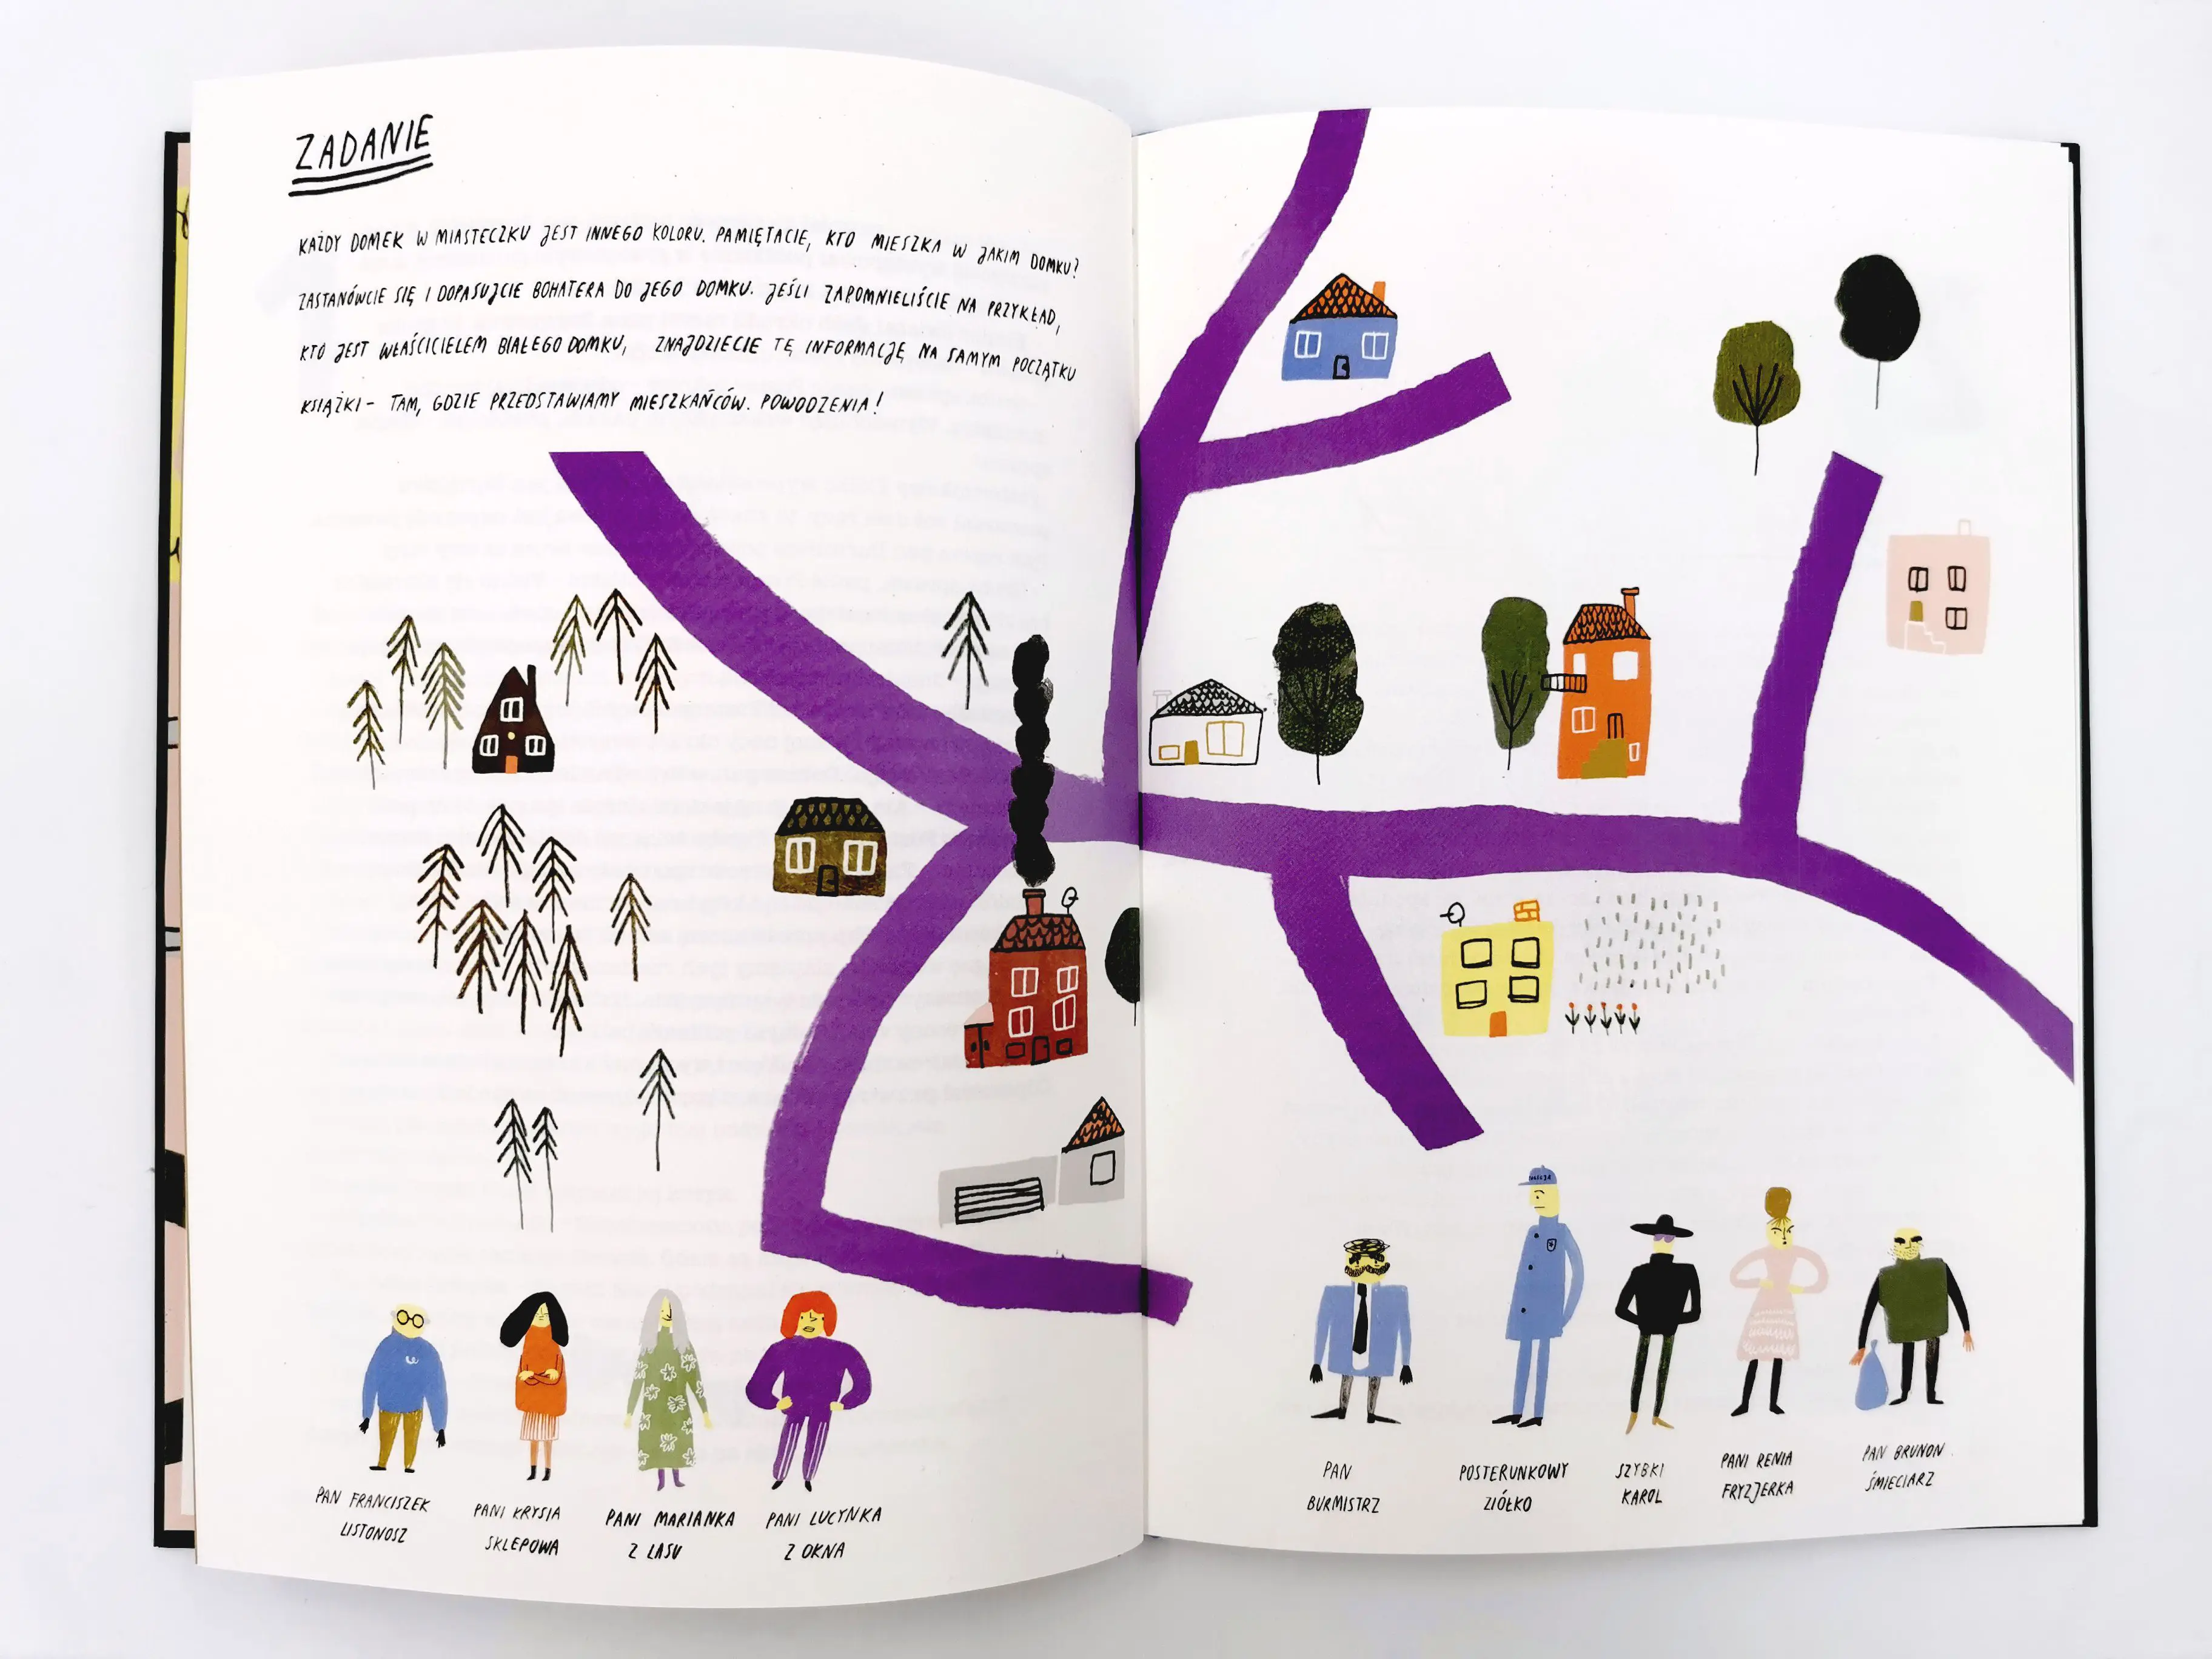 ZADANIE
KAŻDY DOMEK W MIASTECZKU JEST INNEGO KOLORU. PAMIĘTACIE, KTO MIESZKA W JAKIM DOMKU?
ZASTANÓWCIE SIĘ I DOPASUJCIE BOHATERA DO JEGO DOMKU. JEŚLI ZAPOMNIELIŚCIE NA PRZYKŁAD,
KTO JEST WŁAŚCICIELEM BIAŁEGO DOMKU, ZNAJDZIECIE TĘ INFORMACJĘ NA SAMYM POCZĄTKU
KSIĄŻKI - TAM, GDZIE PRZEDSTAWIAMY MIESZKAŃCÓW. POWODZENIA!
PAN FRANCISZEK
LISTONOSZ
PANI KRYSIA
SKLEPOWA
PANI MARIANKA
Z LASU
PANI LUCYNKA
Z OKNA
PAN
BURMISTRZ
POSTERUNKOWY
ZIÓŁKO
SZYBKI
KAROL
PANI RENIA
FRYZJERKA
PAN BRUNON
ŚMIECIARZ